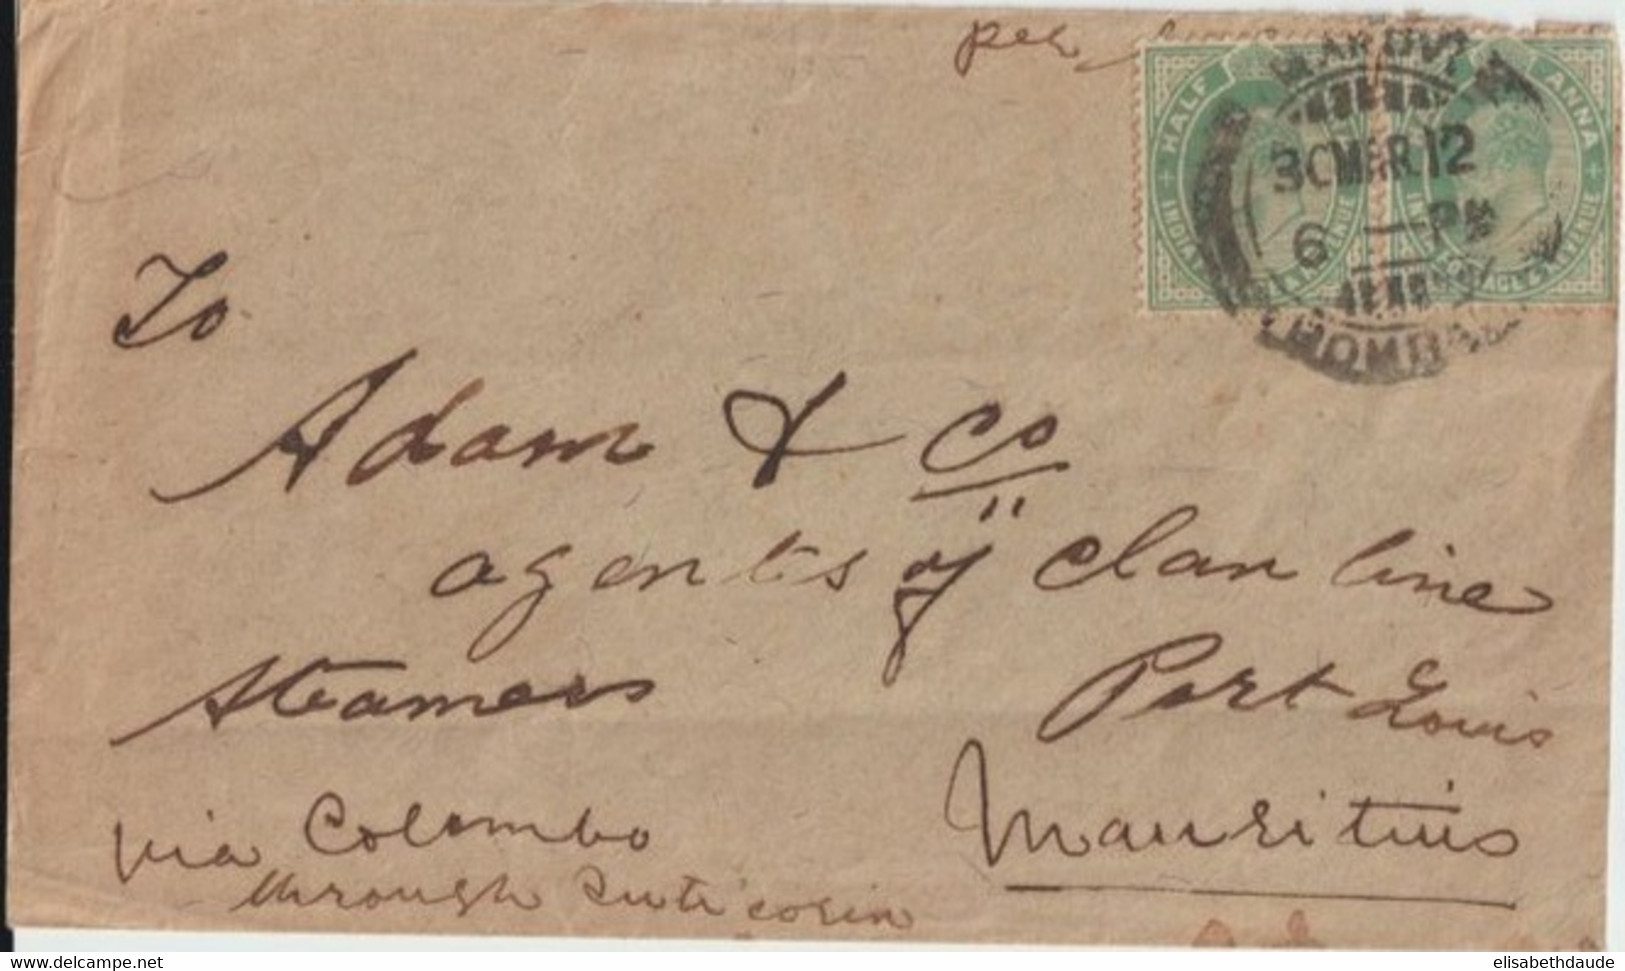 per
HALF
ANNA
MANDVI
30 MAR 12
6 - PM
BOMBAY
INDIA POSTAGE & REVENUE
To
Adam & Co
agents of clan line
steamers
Port Louis
Mauritius
via Colombo
through Tuticorin
www.delcampe.net
elisabethdaude